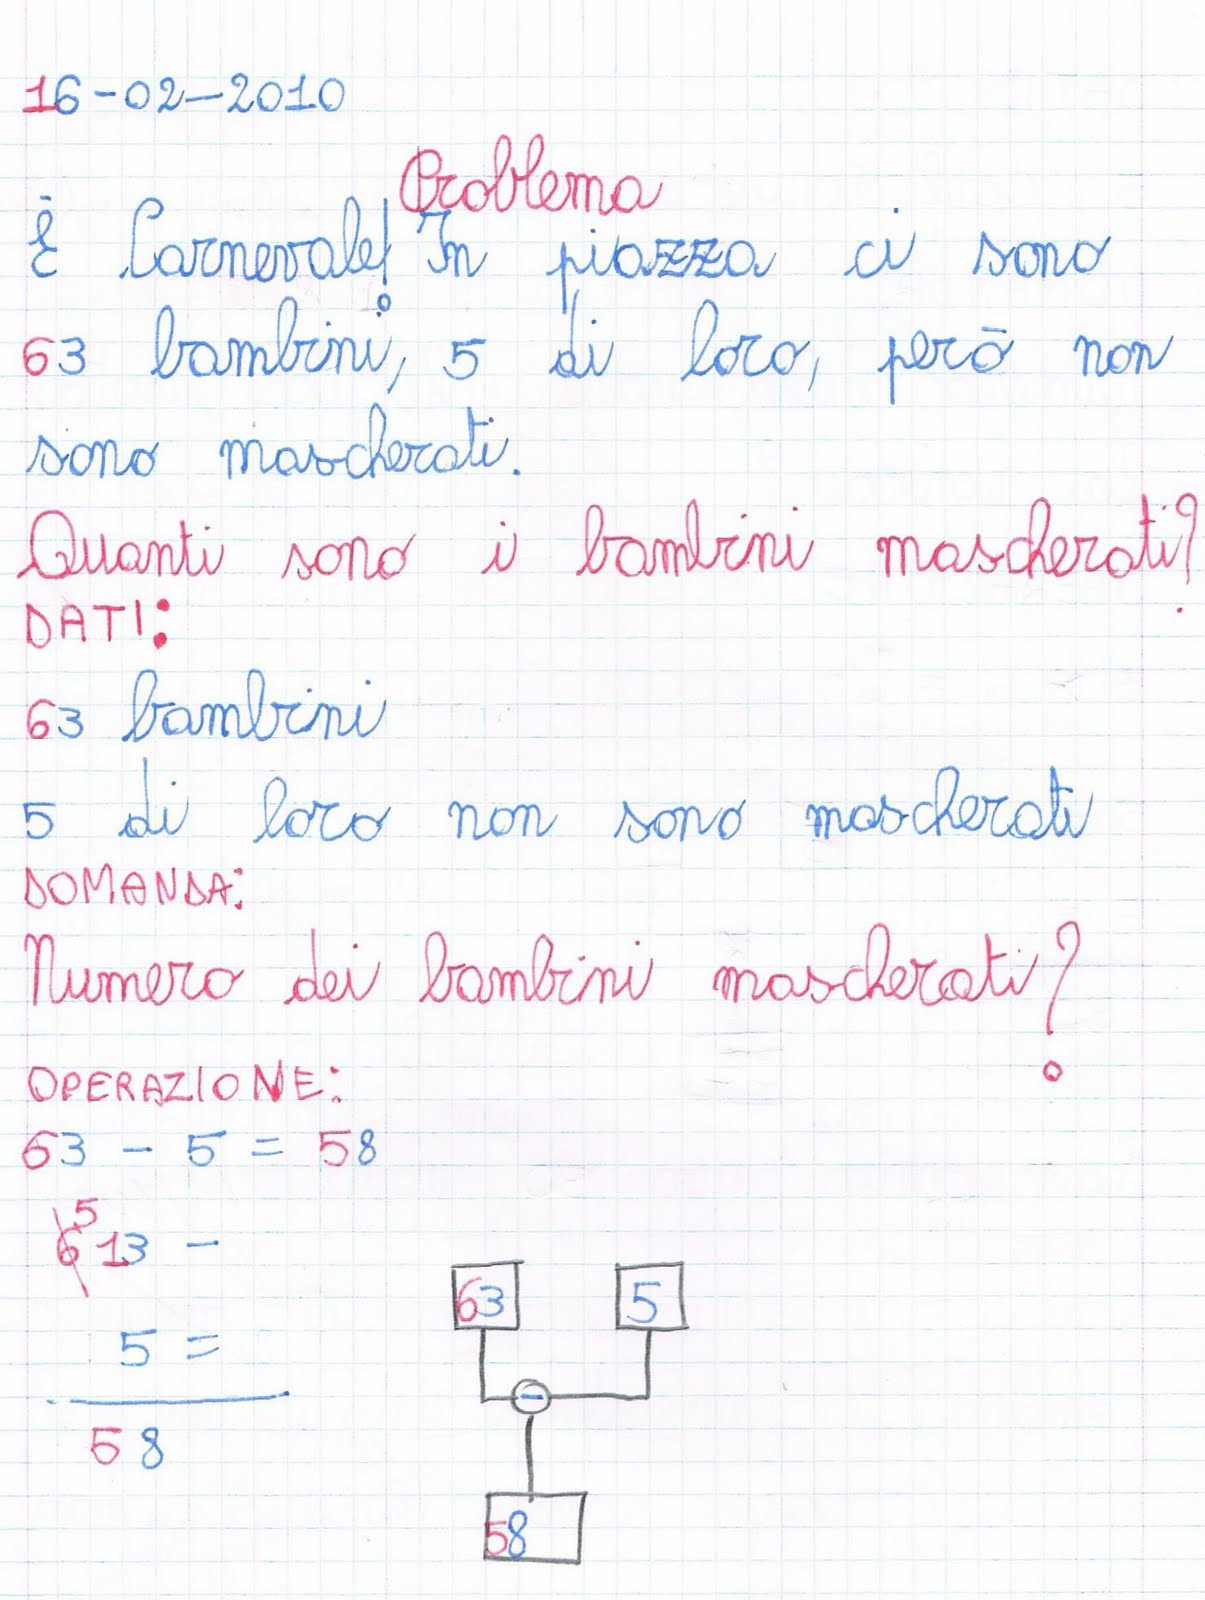 16-02-2010
Problema
È Carnevale! In piazza ci sono
63 bambini, 5 di loro, però non
sono mascherati.
Quanti sono i bambini mascherati?
DATI:
63 bambini
5 di loro non sono mascherati
DOMANDA:
Numero dei bambini mascherati?
OPERAZIONE:
63 - 5 = 58
5
6 13 -
5 =
58
63 5
-
58